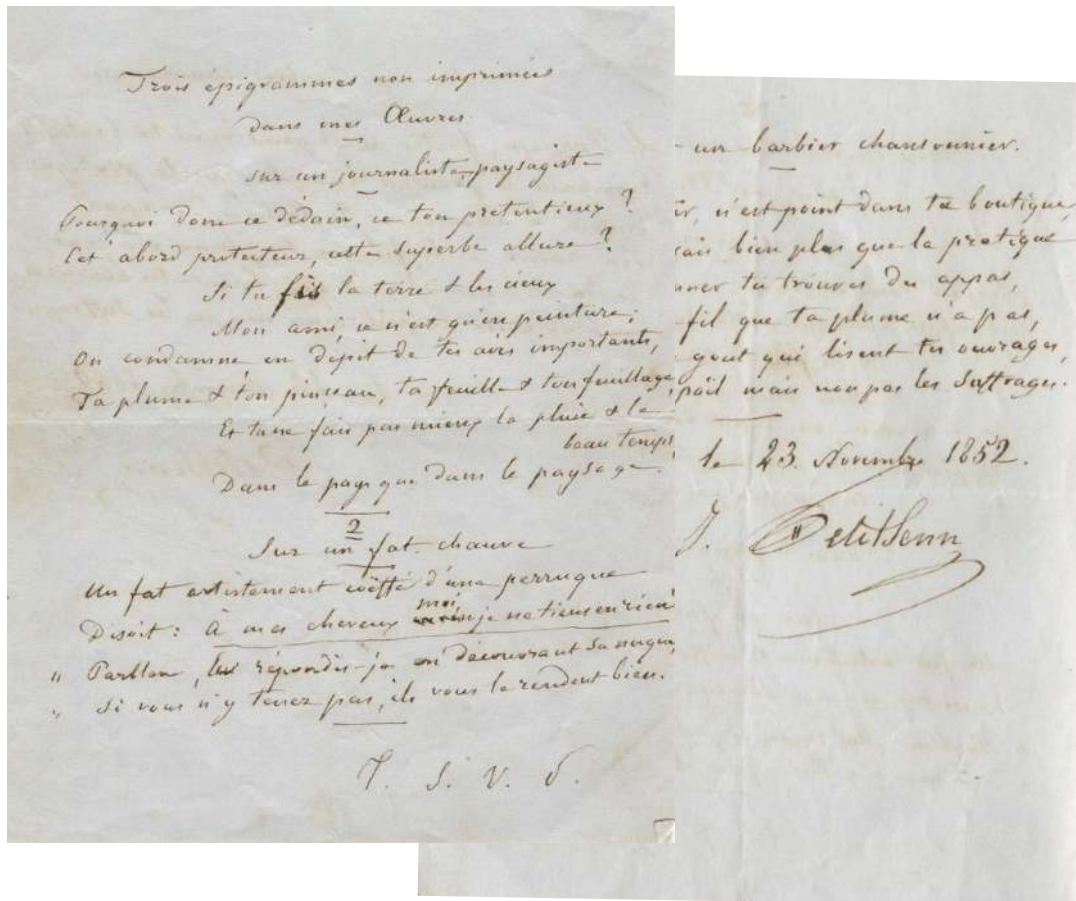 Trois épigrammes non imprimées
dans mes Œuvres.
sur un journaliste paysagiste
Pourquoi donc ce dédain, ce ton prétentieux ?
Cet abord protecteur, cette superbe allure ?
Si tu fis la terre & les cieux
Mon ami, ce n'est qu'en peinture ;
On condamne en dépit de tes airs importants,
Ta plume & ton pinceau, ta feuille & ton feuillage
Et tu ne fais pas mieux la pluie & le
beau temps,
Dans le pays que dans le paysage.
2
Sur un fat chauve
Un fat artistement coëffé d'une perruque
Disoit : à mes cheveux moi, je ne tiens en rien
" Parbleu, répondis-je en découvrant sa nuque,
" Si vous n'y tenez pas, ils vous le rendent bien.
T. S. V. P.
un barbier chansonnier.
n'est point dans ta boutique,
bien plus que la pratique
tu trouves des appas,
fil que ta plume n'a pas,
gout qui lisent tes ouvrages,
poil mais non pas les suffrages.
le 23. Novembre 1852.
J. Petit Senn